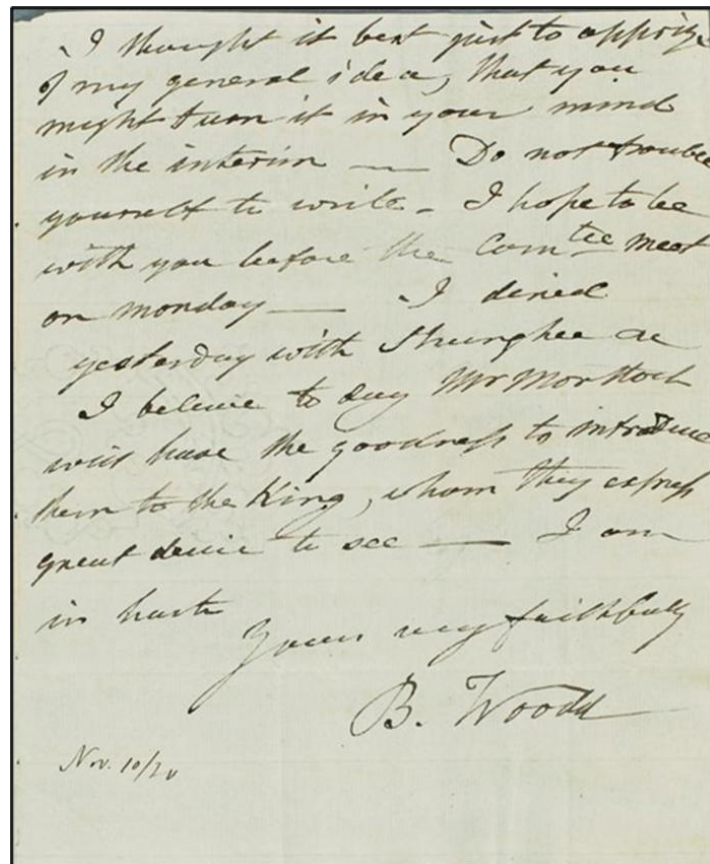 I thought it best just to apprize
of my general idea, that you
might turn it in your mind
in the interim — Do not trouble
yourself to write - I hope to be
with you before the Com^tee meet
on monday — I dined
yesterday with Shunghee &c
I believe to day Mr Mortlock
will have the goodness to introduce
them to the King, whom they express
great desire to see — I am
in haste
Yours very faithfully
B. Woodd
Nov. 10/20